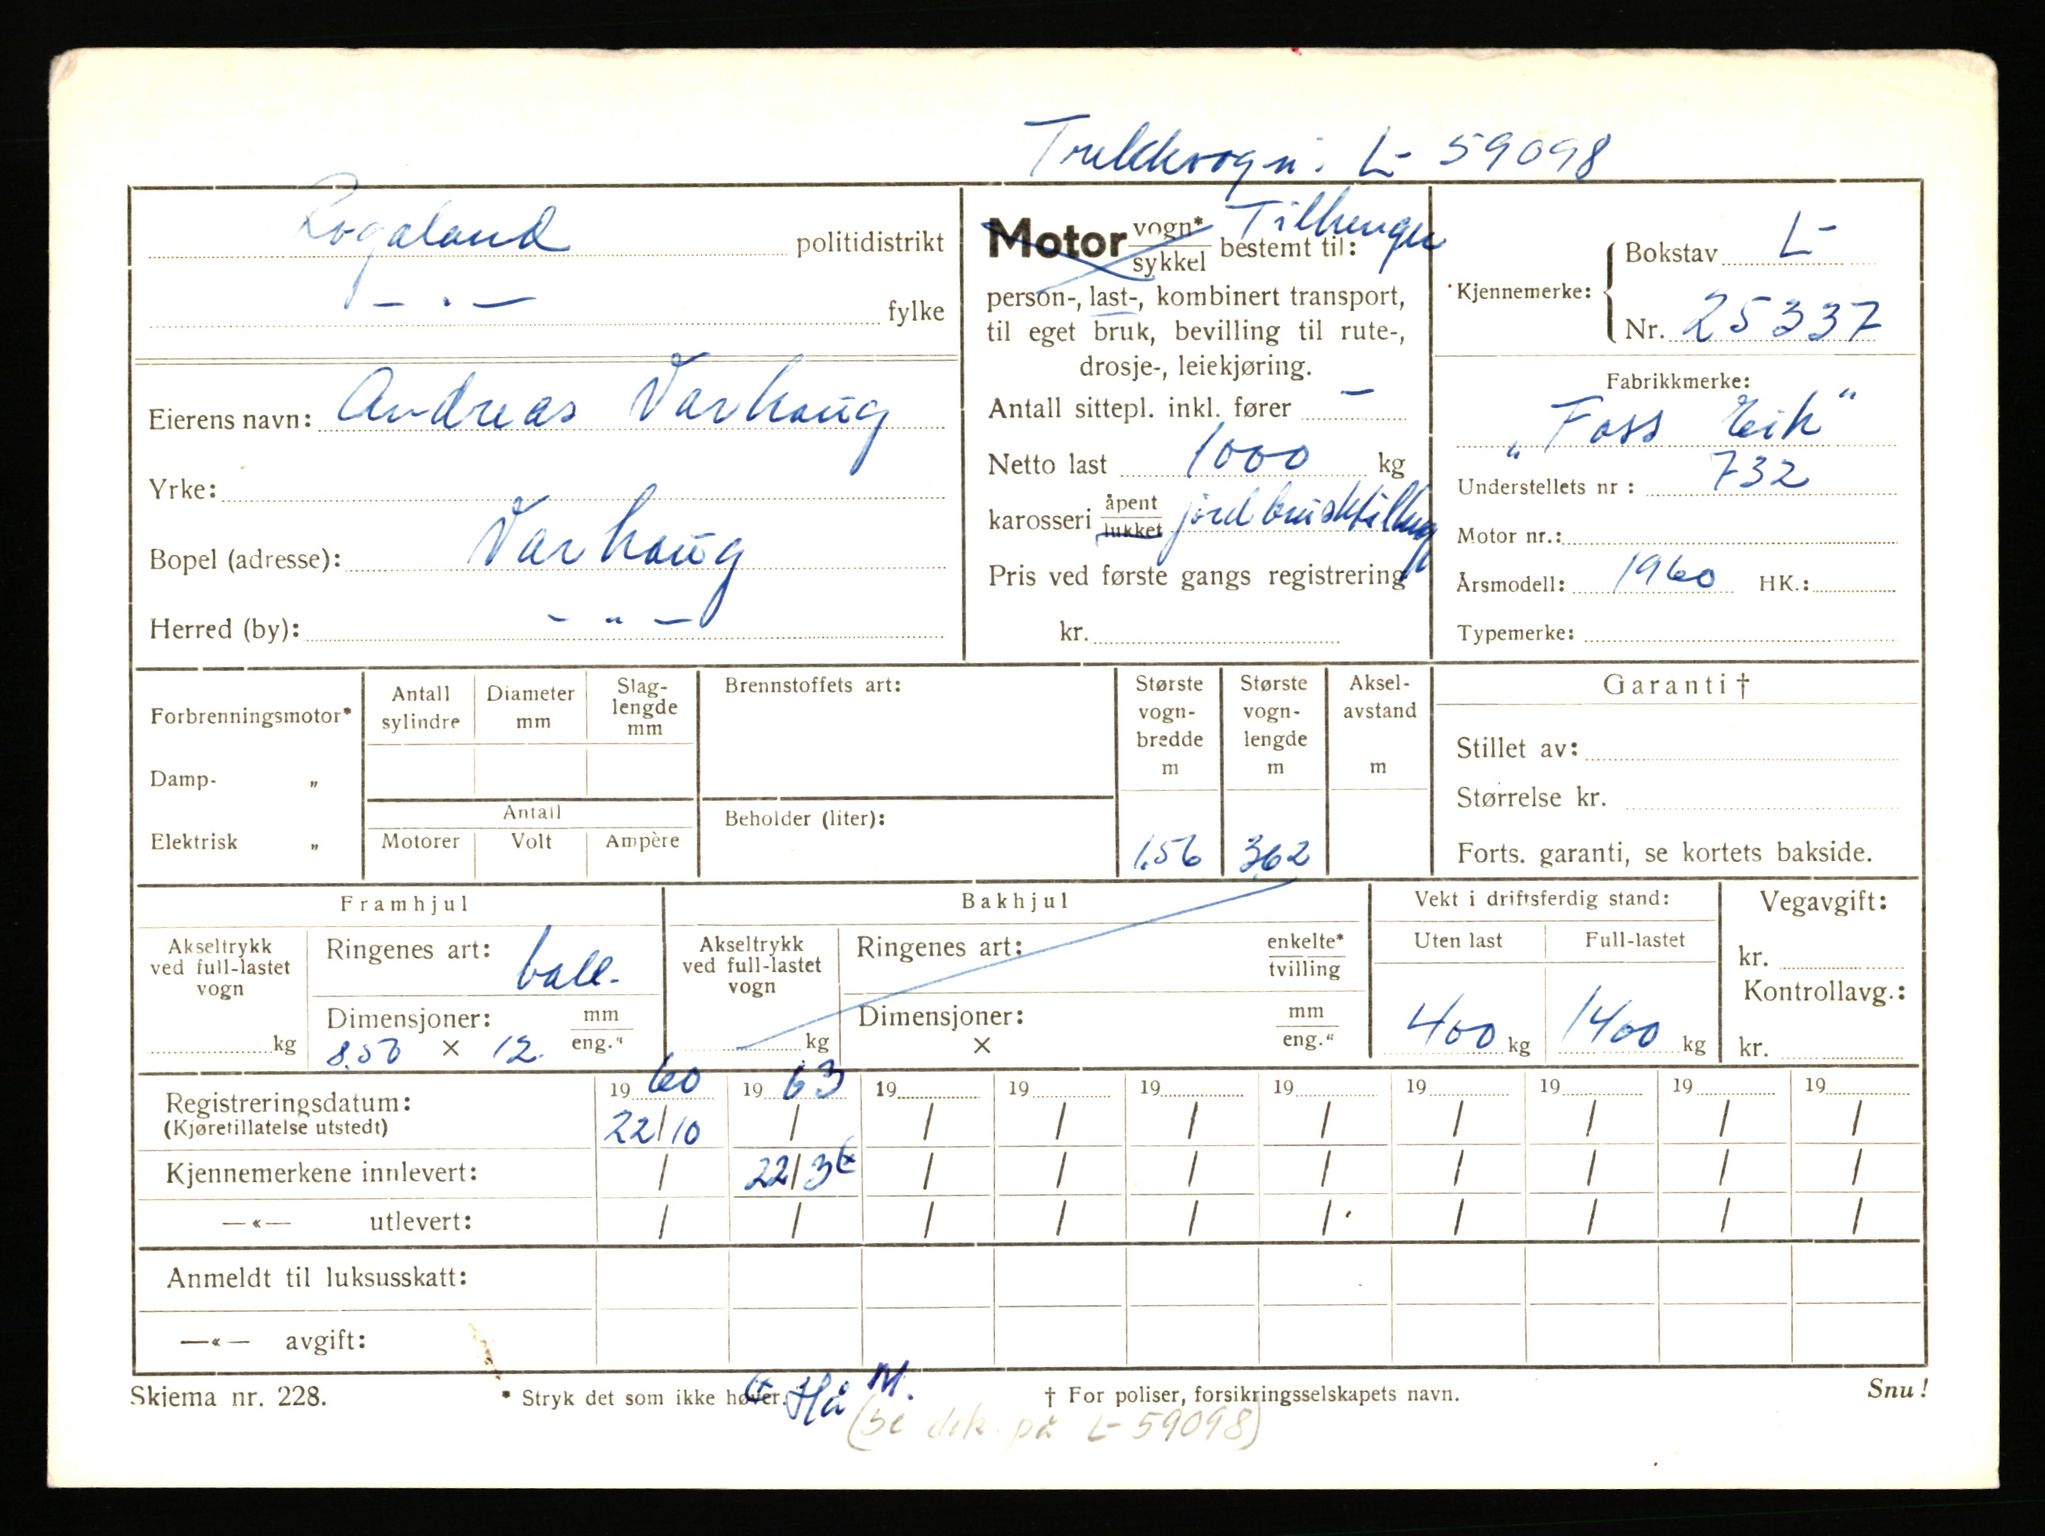 Trekkvogn: L- 59098
Rogaland politidistrikt
— . — fylke
Eierens navn: Andreas Varhaug
Yrke:
Bopel (adresse): Varhaug
Herred (by): — „ —
Motor vogn* / sykkel bestemt til: Tilhenger
person-, last-, kombinert transport,
til eget bruk, bevilling til rute-,
drosje-, leiekjøring.
Antall sittepl. inkl. fører —
Netto last 1000 kg
karosseri åpent / lukket jordbrukstilheng
Pris ved første gangs registrering
kr.
Kjennemerke: Bokstav L-
Nr. 25337
Fabrikkmerke:
„Foss Eik"
Understellets nr : 732
Motor nr.:
Årsmodell: 1960 HK.:
Typemerke:
Forbrenningsmotor*
Damp- „
Elektrisk „
Antall sylindre
Diameter mm
Slag-lengde mm
Antall
Motorer Volt Ampère
Brennstoffets art:
Beholder (liter):
Største vogn-bredde m 1,56
Største vogn-lengde m 3,62
Aksel-avstand m
Garanti †
Stillet av:
Størrelse kr.
Forts. garanti, se kortets bakside.
Framhjul
Akseltrykk ved full-lastet vogn kg
Ringenes art: ball-
Dimensjoner: mm / eng."
8.50 × 12.
Bakhjul
Akseltrykk ved full-lastet vogn kg
Ringenes art: enkelte* / tvilling
Dimensjoner: mm / eng."
×
Vekt i driftsferdig stand:
Uten last Full-lastet
400 kg 1400 kg
Vegavgift:
kr.
Kontrollavg.:
kr.
19 60 19 63 19 19 19 19 19 19 19 19
Registreringsdatum: 22/10 / / / / / / / / /
(Kjøretillatelse utstedt)
Kjennemerkene innlevert: / 22/3 / / / / / / / /
—«— utlevert: / / / / / / / / / /
Anmeldt til luksusskatt:
—«— avgift:
Skjema nr. 228.
* Stryk det som ikke høver.
Hå M.
† For poliser, forsikringsselskapets navn.
Snu!
(se dek. på L-59098)